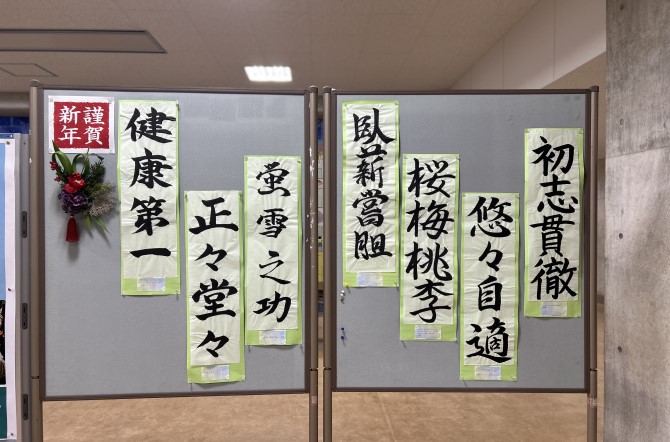 謹賀
新年
初志貫徹
悠々自適
桜梅桃李
臥薪嘗胆
蛍雪之功
正々堂々
健康第一